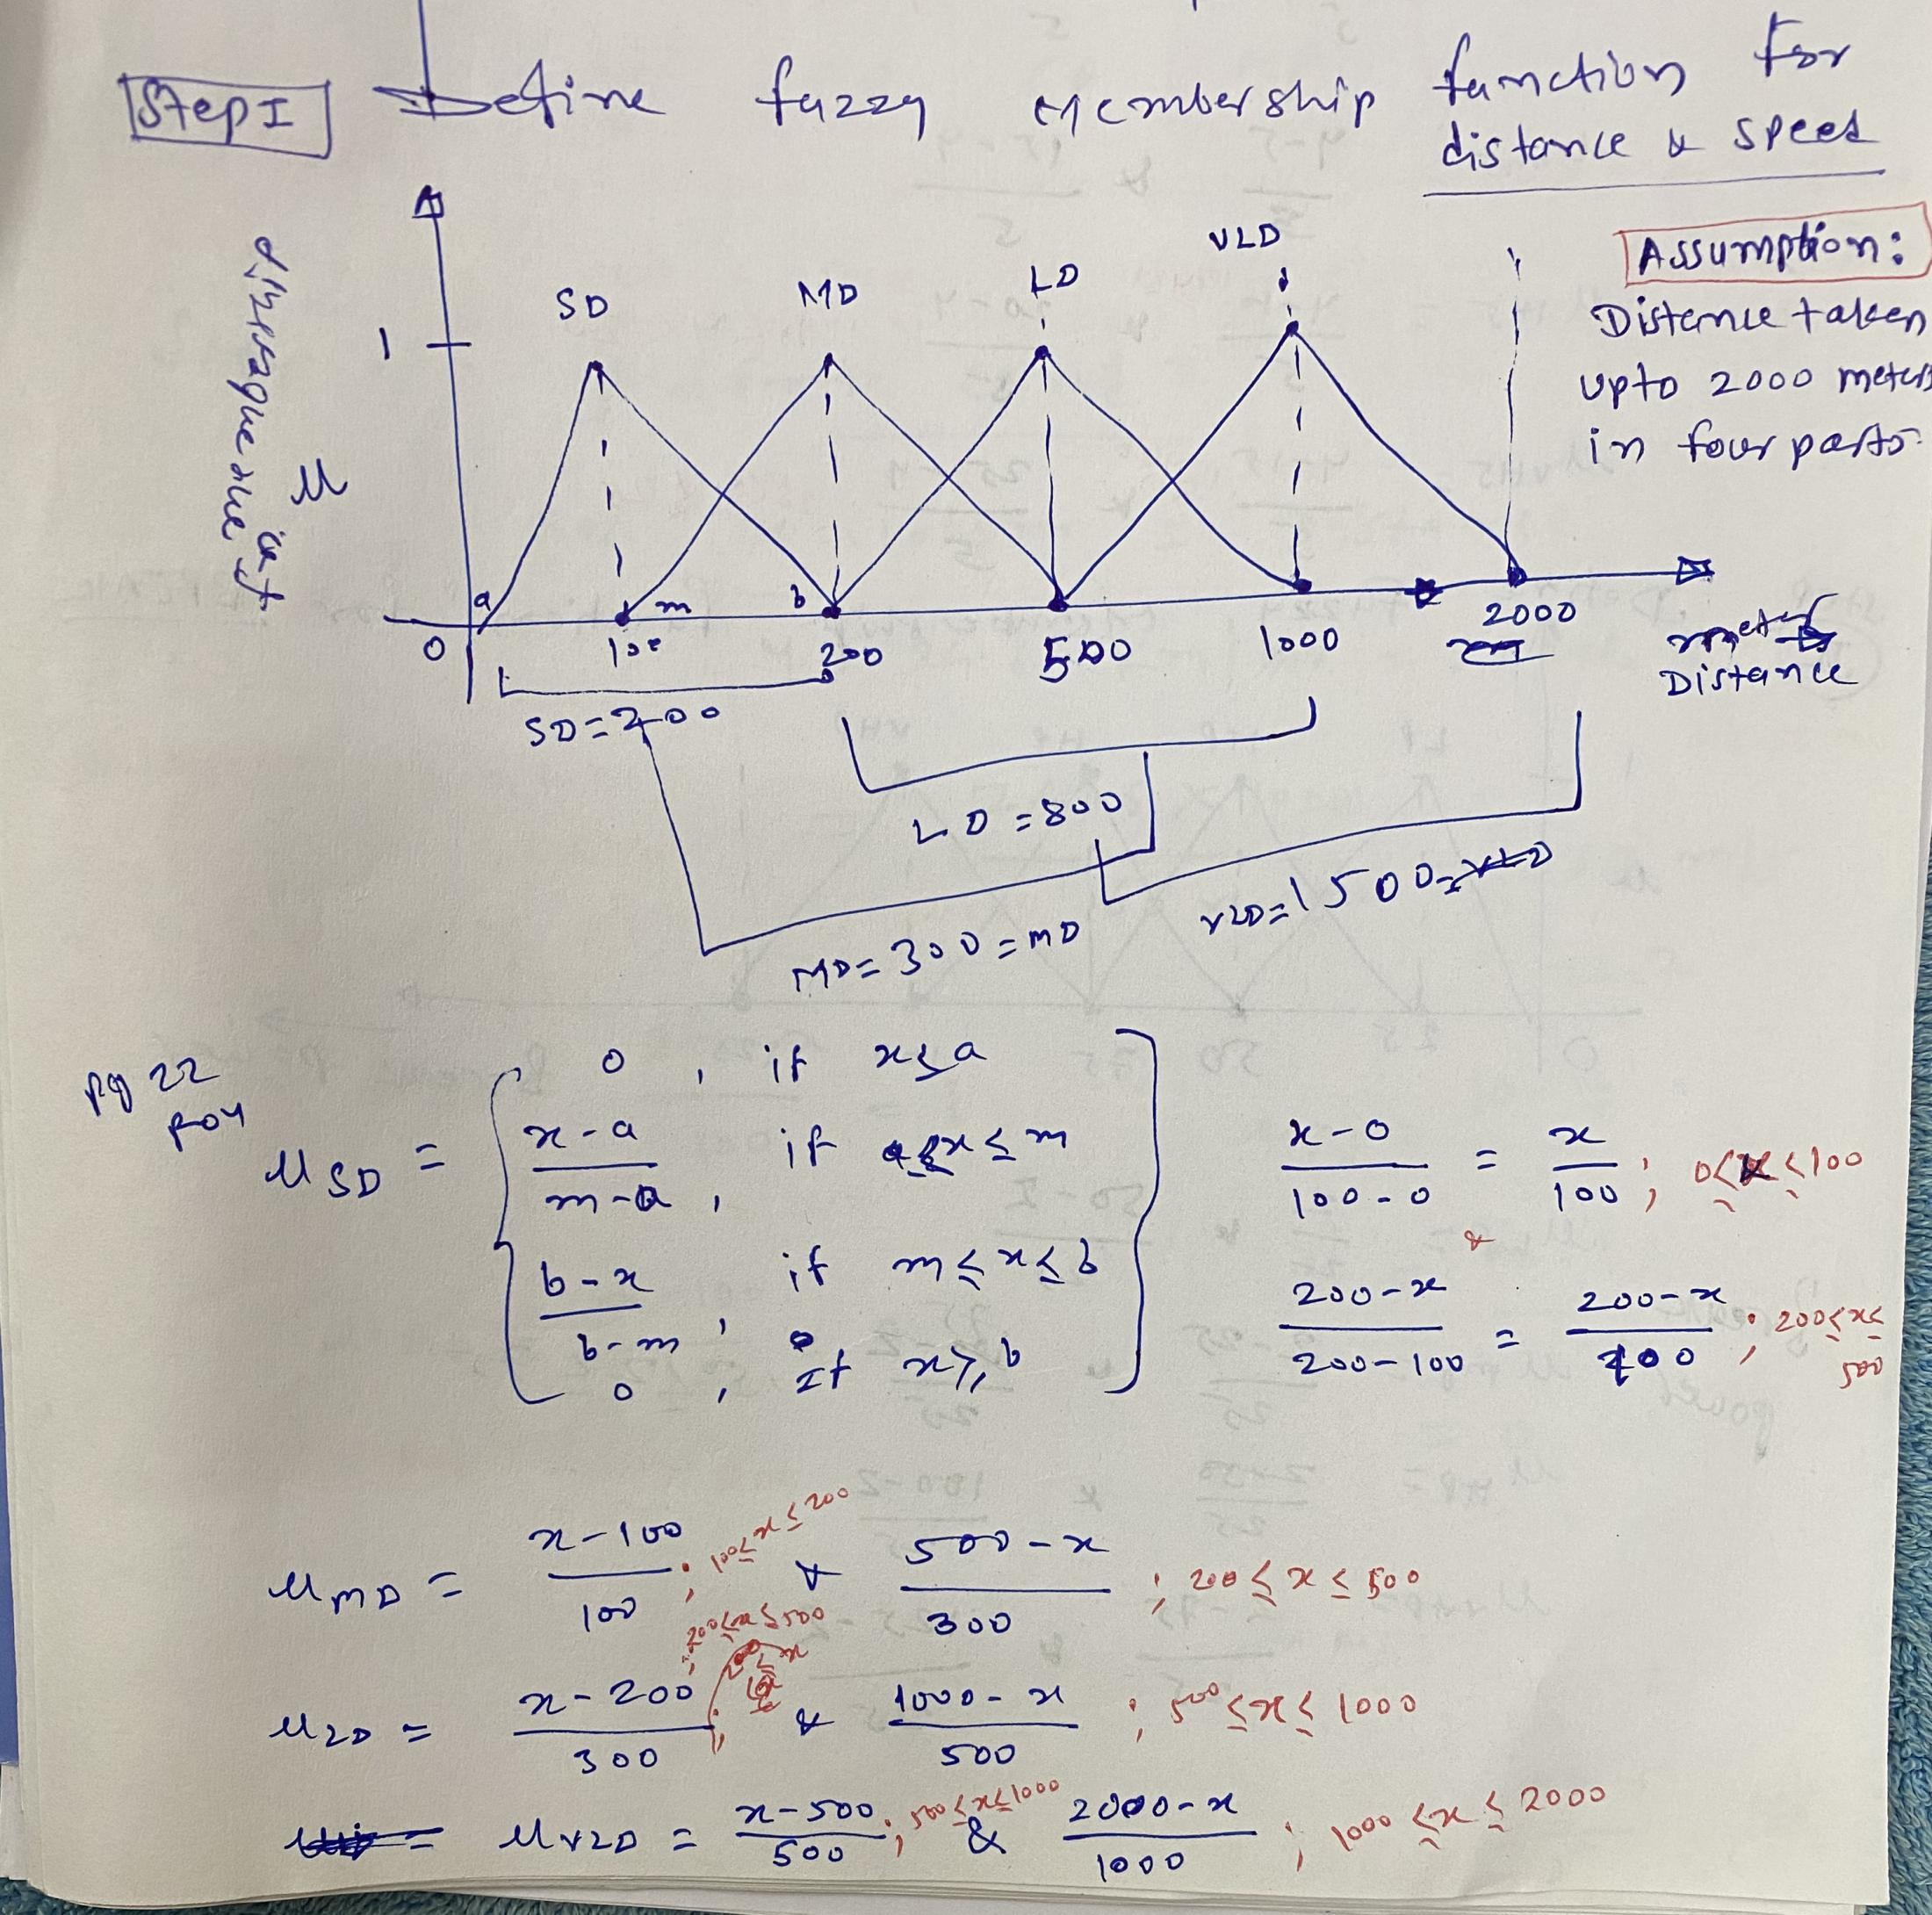 Step I Define fuzzy Membership function for
distance & speed
Assumption:
Distance taken
upto 2000 meters
in four parts
SD MD LD VLD
1
μ
a m b
0 100 200 500 1000 2000
meters
Distance
SD=200
LD=800
VLD=1500=
MD=300=MD
Pg 22
μSD = 0, if x≤a
x-a/m-a, if a≤x≤m
b-x/b-m, if m≤x≤b
0, if x≥b
x-0/100-0 = x/100; 0≤x≤100
&
200-x/200-100 = 200-x/100; 200≤x≤500
μMD = x-100/100; 100≤x≤200 & 500-x/300; 200≤x≤500
μLD = x-200/300; 200≤x≤500 & 1000-x/500; 500≤x≤1000
μVLD = x-500/500; 500≤x≤1000 & 2000-x/1000; 1000≤x≤2000